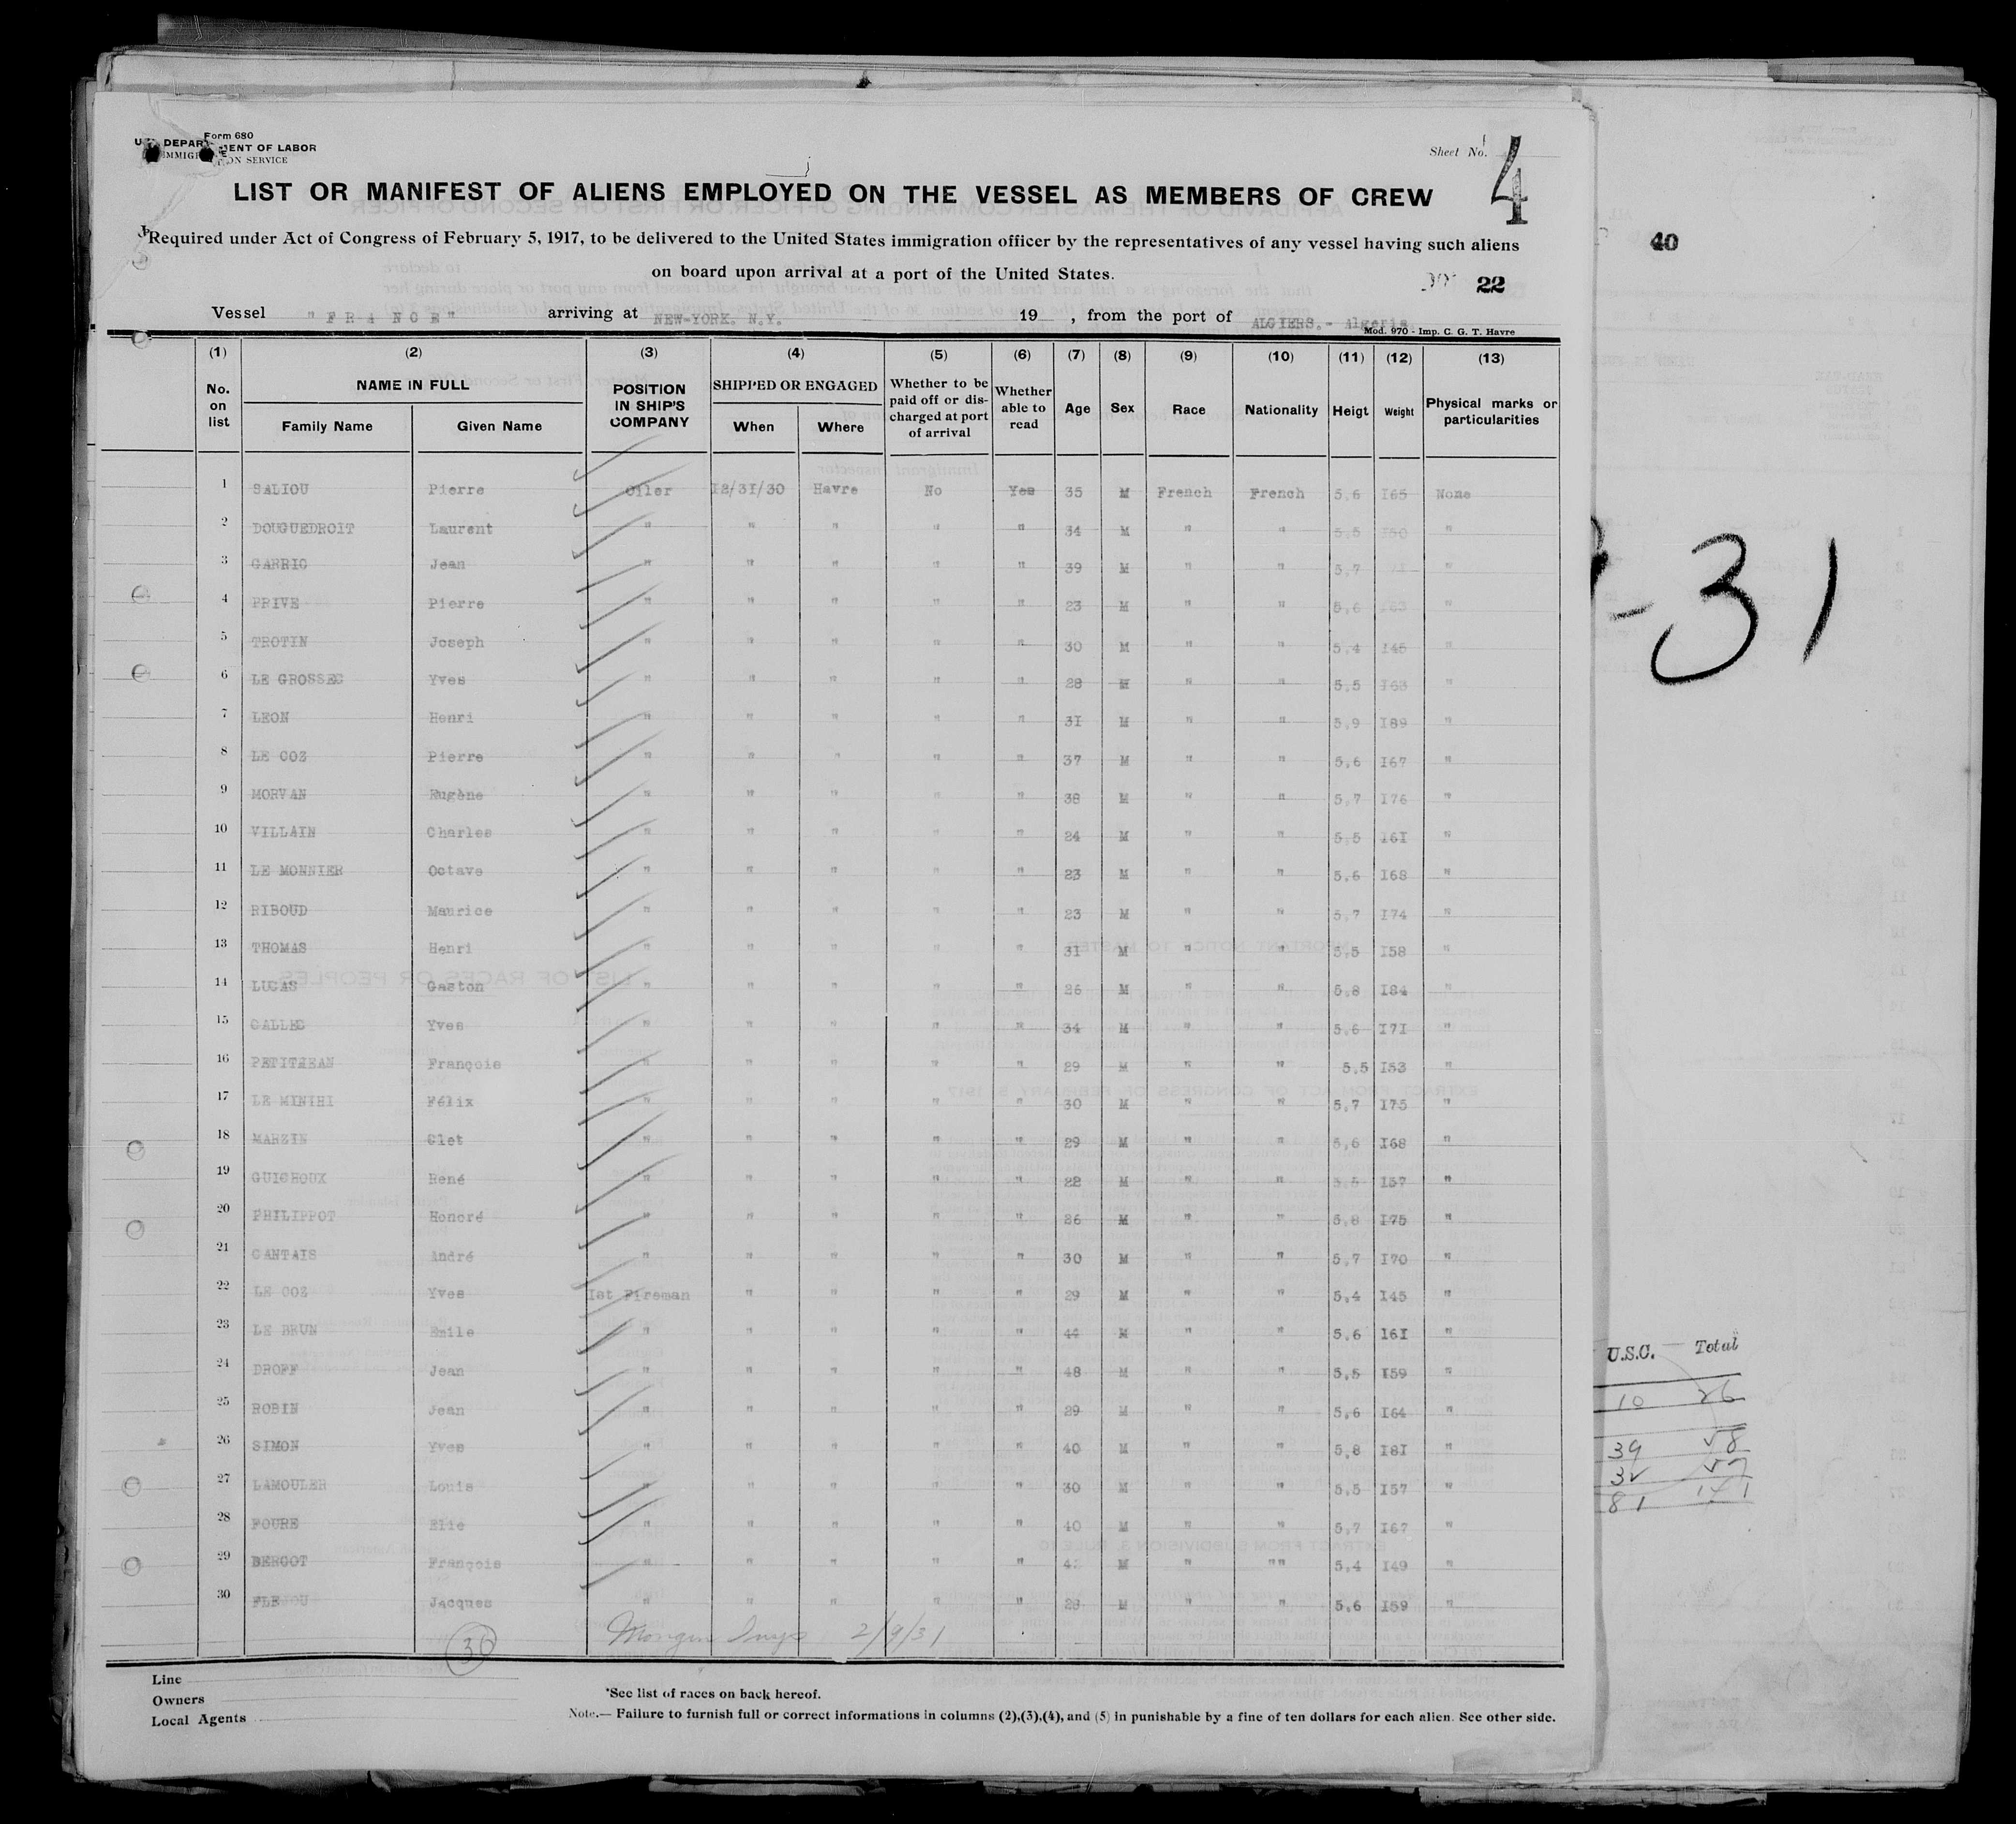 Form 680
U. DEPAR MENT OF LABOR
IMMIG ON SERVICE
Sheet No. 4
LIST OR MANIFEST OF ALIENS EMPLOYED ON THE VESSEL AS MEMBERS OF CREW
Required under Act of Congress of February 5, 1917, to be delivered to the United States immigration officer by the representatives of any vessel having such aliens
on board upon arrival at a port of the United States.
22
40
Vessel "FRANCE" arriving at NEW-YORK. N.Y. 19 , from the port of ALGIERS.- Algeria
Mod. 970 - Imp. C. G. T. Havre
(1) (2) (3) (4) (5) (6) (7) (8) (9) (10) (11) (12) (13)
No. on list NAME IN FULL Family Name Given Name POSITION IN SHIP'S COMPANY SHIPPED OR ENGAGED When Where Whether to be paid off or discharged at port of arrival Whether able to read Age Sex Race Nationality Heigt Weight Physical marks or particularities
1 SALIOU Pierre Oiler I2/3I/30 Havre No Yes 35 M French French 5,6 I65 None
2 DOUGUEDROIT Laurent " " " " " 34 M " " 5,5 I50 "
3 GARRIC Jean " " " " " 39 M " " 5,7 "
4 PRIVE Pierre " " " " " 23 M " " 5,6 I63 "
5 TROTIN Joseph " " " " " 30 M " " 5,4 I45 "
6 LE GROSSEC Yves " " " " " 28 M " " 5,5 I63 "
7 LEON Henri " " " " " 3I M " " 5,9 I89 "
8 LE COZ Pierre " " " " " 37 M " " 5,6 I67 "
9 MORVAN Eugène " " " " " 38 M " " 5,7 I76 "
10 VILLAIN Charles " " " " " 24 M " " 5,5 I6I "
11 LE MONNIER Octave " " " " " 23 M " " 5,6 I68 "
12 RIBOUD Maurice " " " " " 23 M " " 5,7 I74 "
13 THOMAS Henri " " " " " 3I M " " 5,5 I58 "
14 LUCAS Gaston " " " " " 26 M " " 5,8 I84 "
15 CALLEC Yves " " " " " 34 M " " 5,6 I7I "
16 PETITJEAN François " " " " " 29 M " " 5,5 I53 "
17 LE MINIHI Félix " " " " " 30 M " " 5,7 I75 "
18 MARZIN Clet " " " " " 29 M " " 5,6 I68 "
19 GUICHOUX René " " " " " 22 M " " 5,5 I57 "
20 PHILIPPOT Honoré " " " " " 26 M " " 5,8 I75 "
21 CANTAIS André " " " " " 30 M " " 5,7 I70 "
22 LE COZ Yves Ist Fireman " " " " 29 M " " 5,4 I45 "
23 LE BRUN Emile " " " " " 44 M " " 5,6 I6I "
24 DROFF Jean " " " " " 48 M " " 5,5 I59 "
25 ROBIN Jean " " " " " 29 M " " 5,6 I64 "
26 SIMON Yves " " " " " 40 M " " 5,8 I8I "
27 LAMOULER Louis " " " " " 30 M " " 5,5 I57 "
28 FOURE Elie " " " " " 40 M " " 5,7 I67 "
29 BERGOT François " " " " " M " "" 5,4 I49 "
30 Jacques " " " " " 28 M " " 5,6 I59 "
30 2/9/31
-31
U.S.C. Total
10 26
39 58
32 57
81 141
Line
Owners
Local Agents
*See list of races on back hereof.
Note.— Failure to furnish full or correct informations in columns (2),(3),(4), and (5) in punishable by a fine of ten dollars for each alien. See other side.